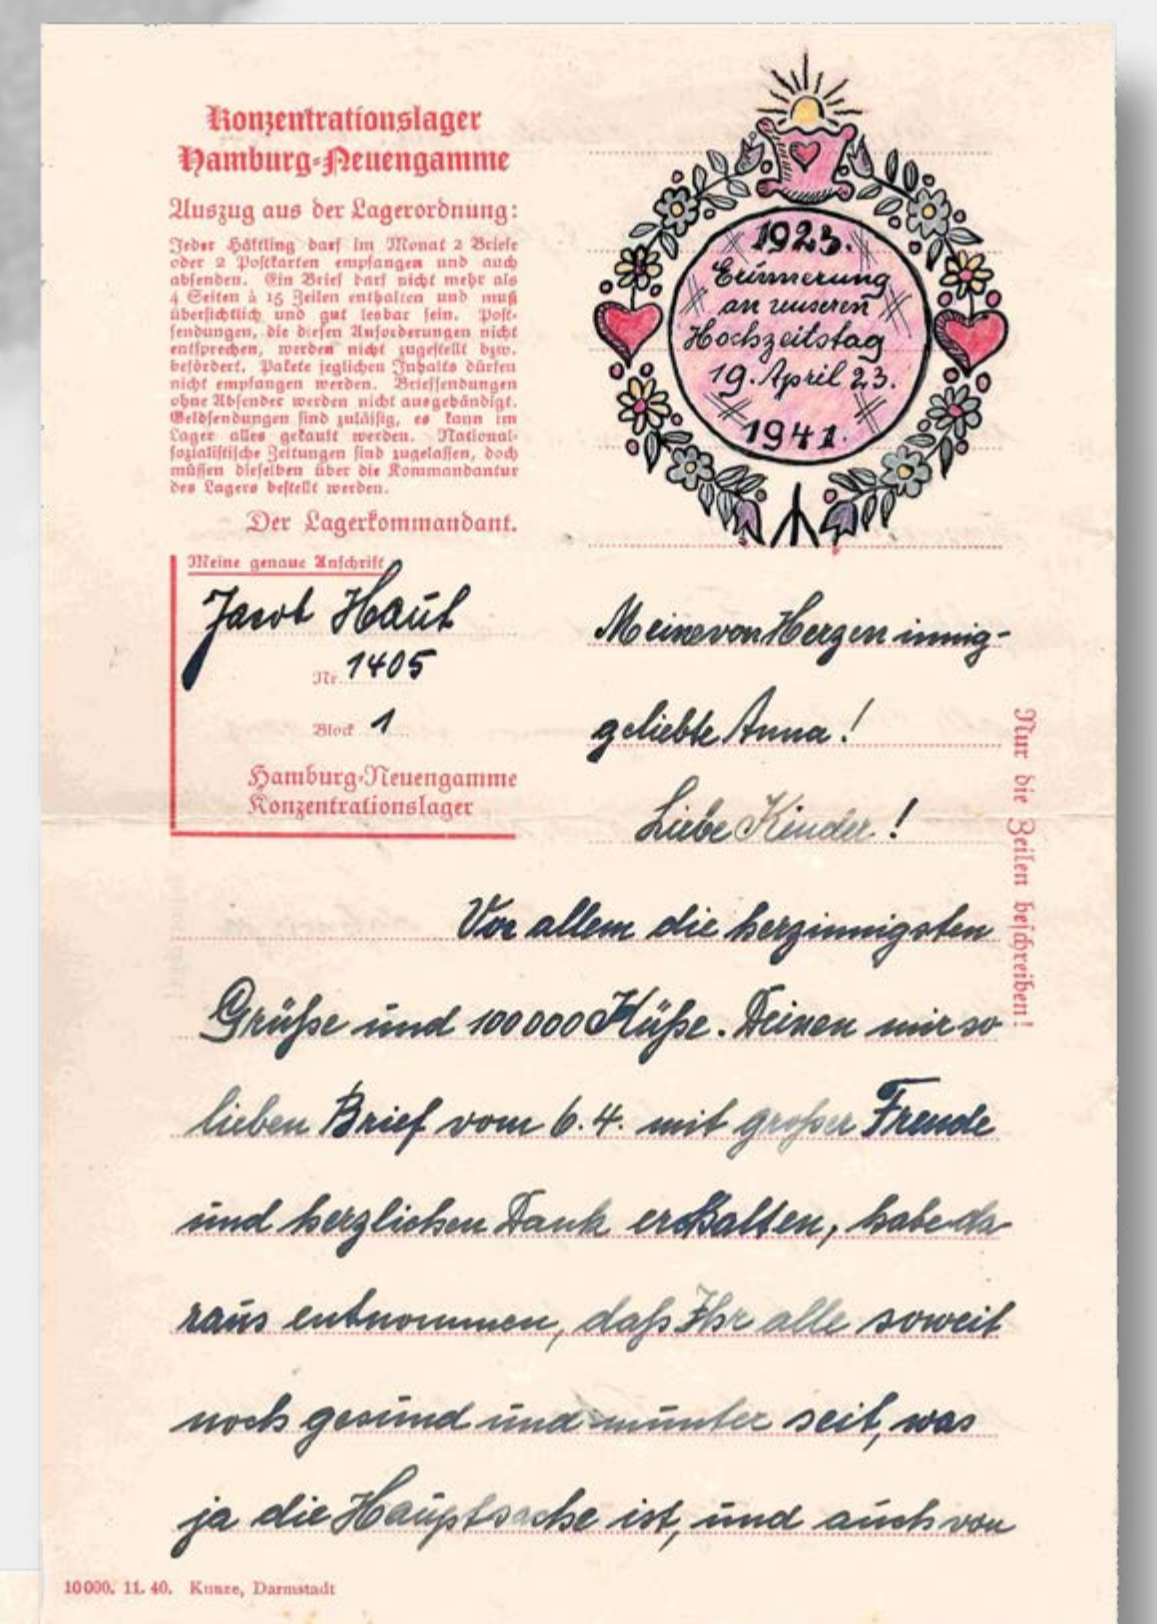 Konzentrationslager
Hamburg-Neuengamme
Auszug aus der Lagerordnung:
Jeder Häftling darf im Monat 2 Briefe
oder 2 Postkarten empfangen und auch
absenden. Ein Brief darf nicht mehr als
4 Seiten à 15 Zeilen enthalten und muß
übersichtlich und gut lesbar sein. Post-
sendungen, die diesen Anforderungen nicht
entsprechen, werden nicht zugestellt bzw.
befördert. Pakete jeglichen Inhalts dürfen
nicht empfangen werden. Briefsendungen
ohne Absender werden nicht ausgehändigt.
Geldsendungen sind zulässig, es kann im
Lager alles gekauft werden. National-
sozialistische Zeitungen sind zugelassen, doch
müssen dieselben über die Kommandantur
des Lagers bestellt werden.
Der Lagerkommandant.
Meine genaue Anschrift
Jacob Haut
Nr. 1405
Block 1
Hamburg-Neuengamme
Konzentrationslager
1923.
Erinnerung
an unseren
Hochzeitstag
19. April 23.
1941.
Meine von Herzen innig-
geliebte Anna!
Liebe Kinder!
Vor allem die herzinnigsten
Grüße und 100000 Küße. Deinen mir so
lieben Brief vom 6.4. mit großer Freude
und herzlichen Dank erhalten, habe da
raus entnommen, daß Ihr alle soweit
noch gesund und munter seit, was
ja die Hauptsache ist, und auch von
Nur die Zeilen beschreiben!
10000. 11. 40. Kunze, Darmstadt